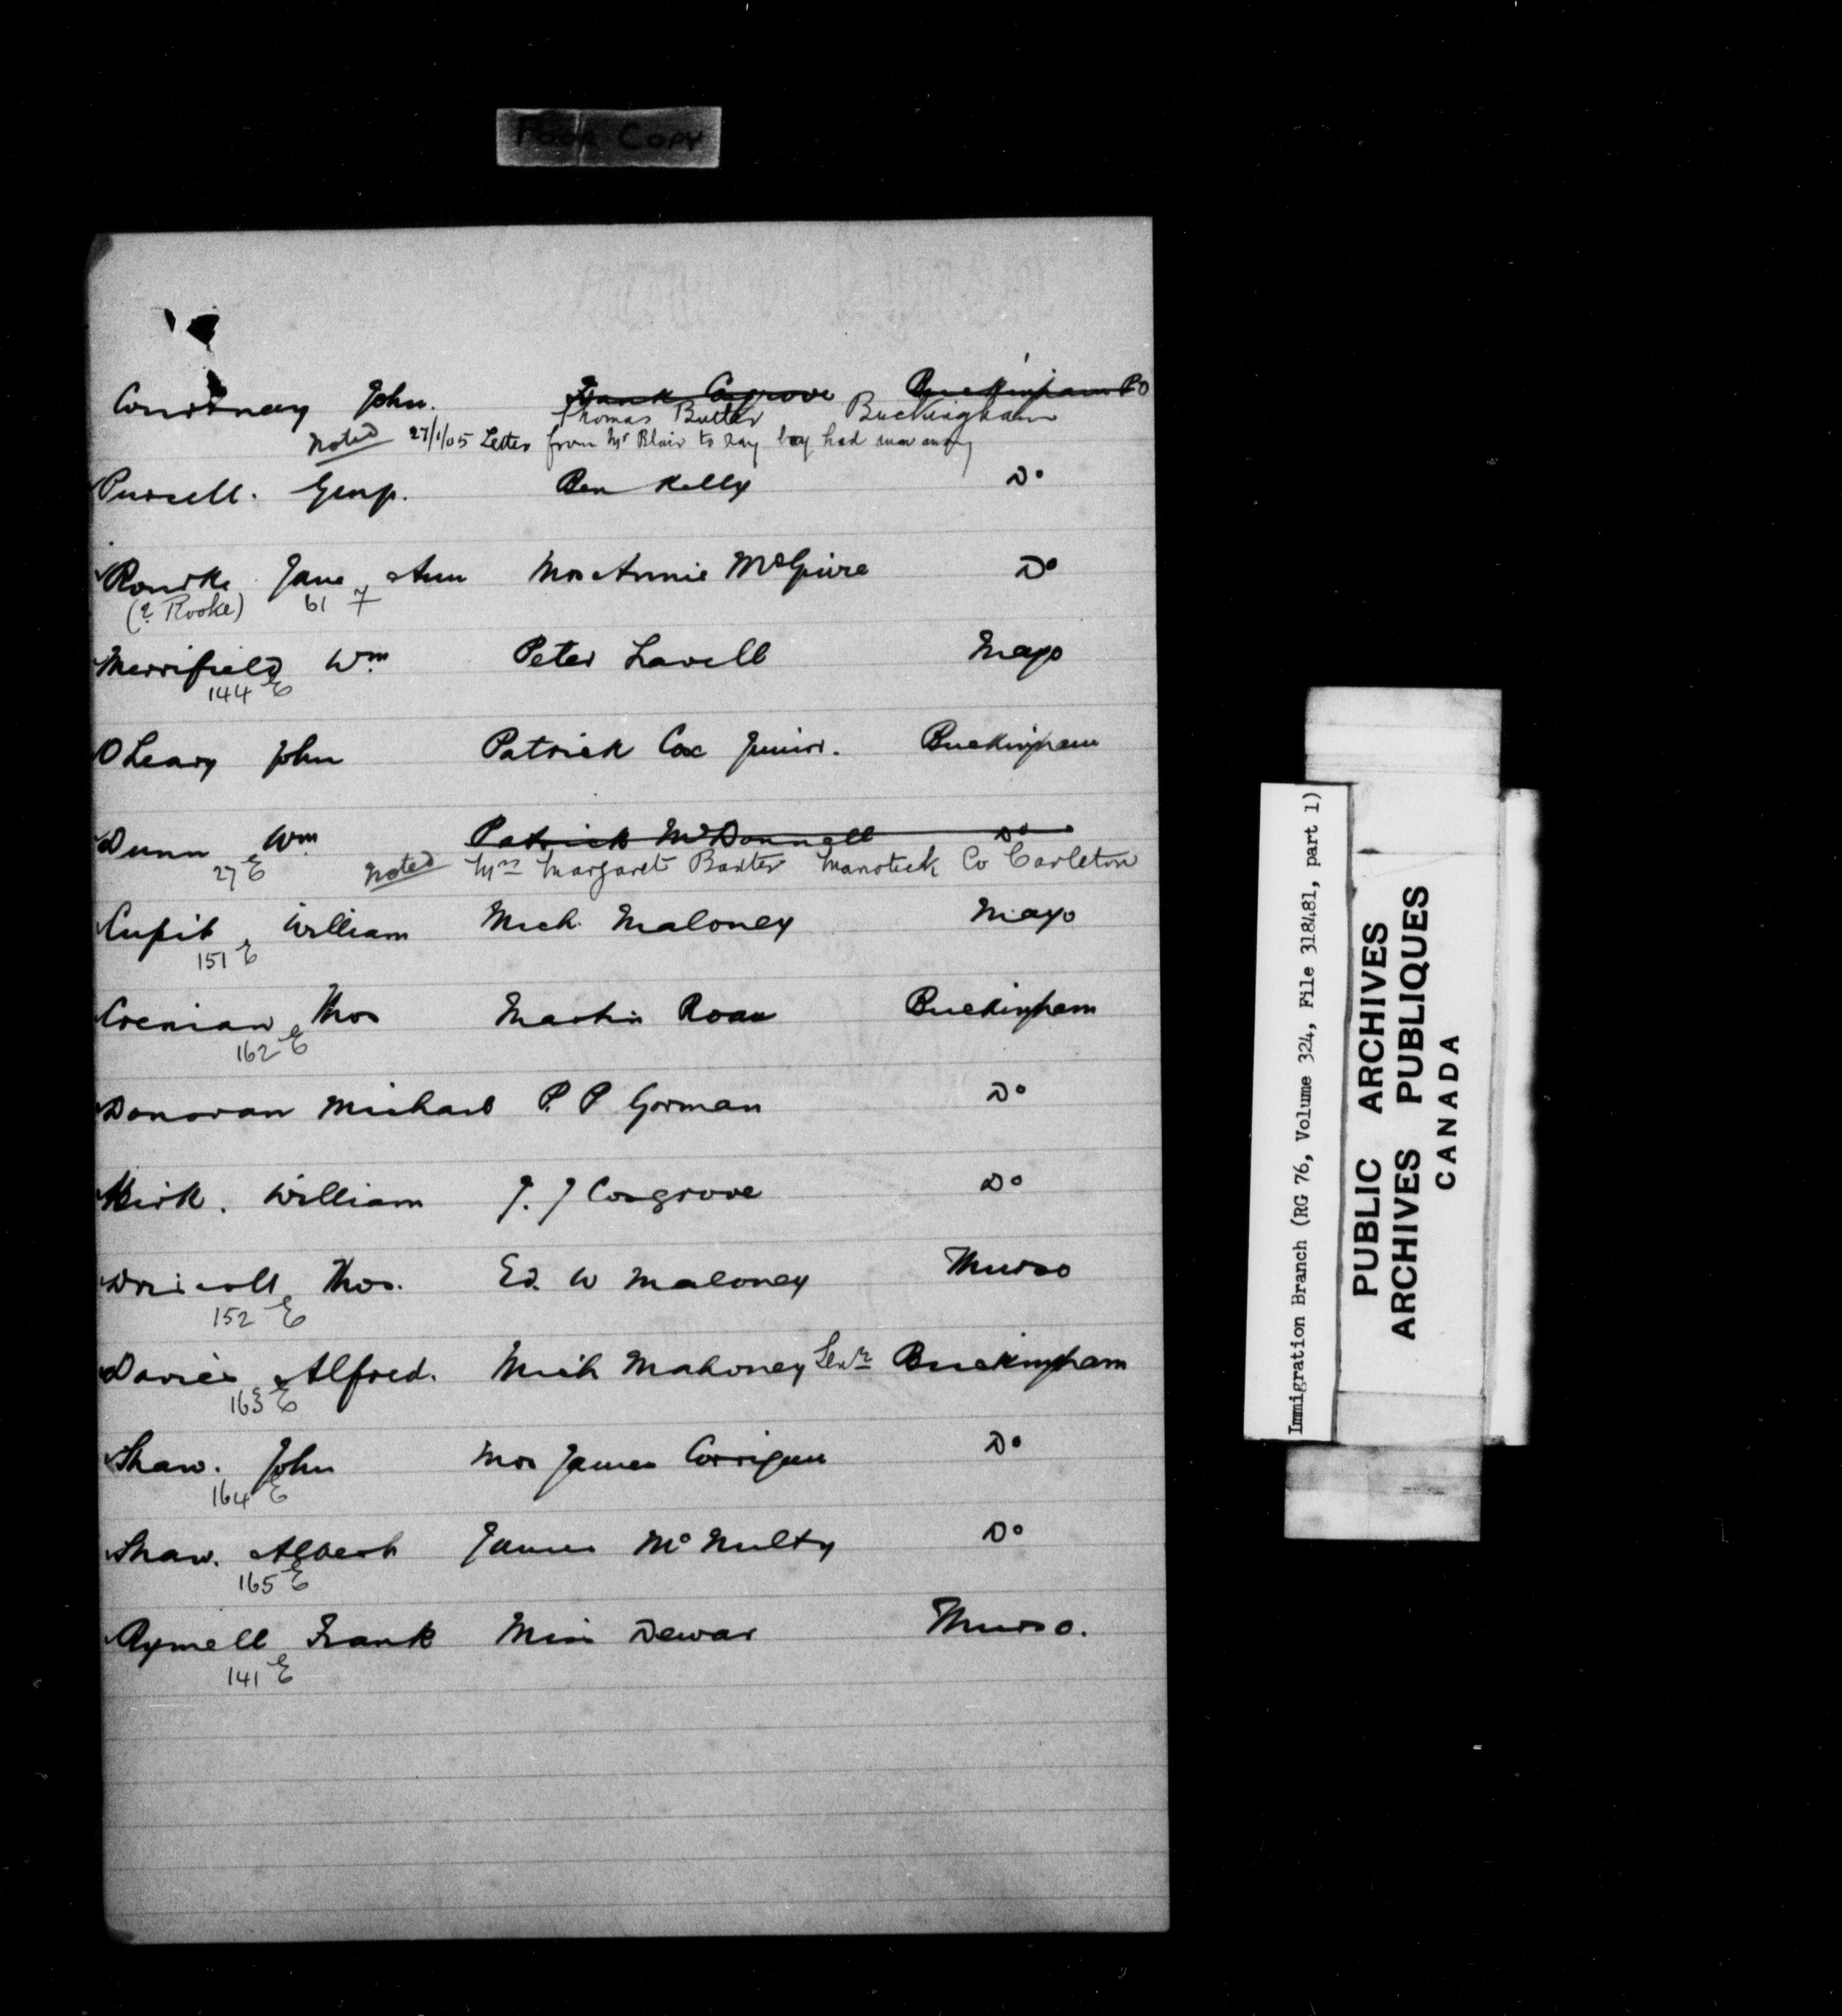 Poor Copy
Courtnay John. Frank Cosgrove Buckingham PO
Thomas Butler Buckingham
noted 27/1/05 Letter from Mr Blair to say boy had run away
Purcell. Geo. Ben Kelly Do
Rourke Jane Ann Mrs Annie McGuire Do
(? Rooke) 61 7
Merrifield Wm Peter Lavell Mayo
144 E
O'Leary John Patrick Cox Junior. Buckingham
Dunn Wm Patrick McDonnell Do
27 E noted Mrs Margaret Baxter Manotick Co Carleton
Cupit William Mich. Maloney Mayo
151 E
Thos Martin Roan Buckingham
162 E
Donovan Michael P. P Gorman Do
Kirk. William J. J Cosgrove Do
Driscoll Thos. Ed. W Maloney Thurso
152 E
Davies Alfred. Mich Mahoney Senr Buckingham
163 E
Shaw. John Mrs James Corrigan Do
164 E
Shaw. Albert James McNulty Do
165 E
Aymell Frank Miss Dewar Thurso.
141 E
Immigration Branch (RG 76, Volume 324, File 318481, part 1)
PUBLIC ARCHIVES
ARCHIVES PUBLIQUES
CANADA